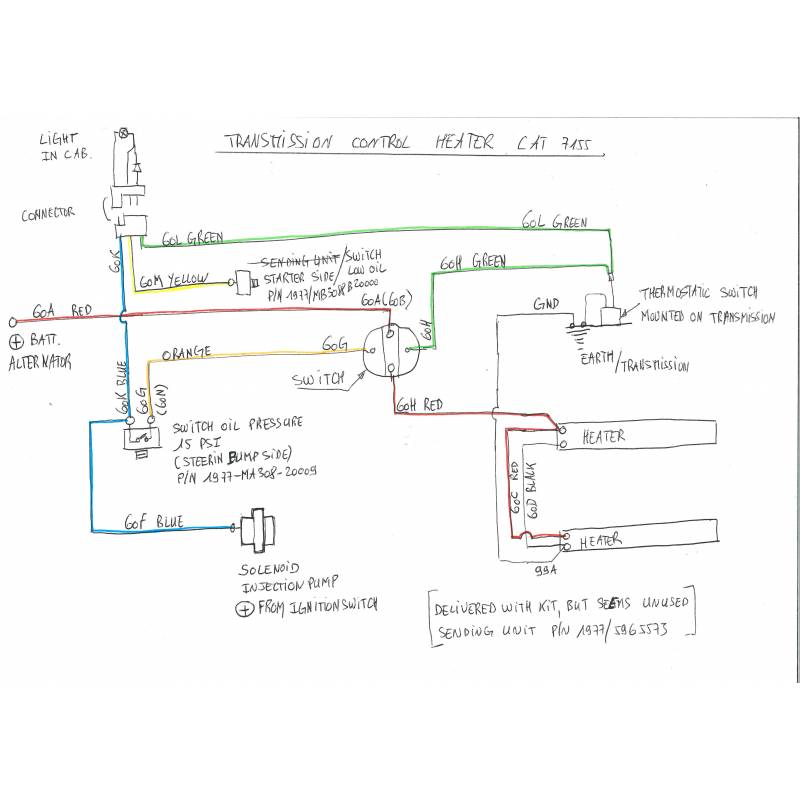 TRANSMISSION CONTROL HEATER CAT 7155
LIGHT
IN CAB.
CONNECTOR
60K
60L GREEN
60L GREEN
60M YELLOW
SENDING UNIT/SWITCH
STARTER SIDE/LOW OIL
P/N 1977/MB308B20000
60H GREEN
60A RED
60A(60B)
60H
+ BATT.
ALTERNATOR
ORANGE
60G
SWITCH
GND
THERMOSTATIC SWITCH
MOUNTED ON TRANSMISSION
EARTH/TRANSMISSION
60K BLUE
60G
(60N)
60H RED
SWITCH OIL PRESSURE
15 PSI
(STEERIN PUMP SIDE)
P/N 1977-MA308-20009
HEATER
60C RED
60D BLACK
HEATER
99A
60F BLUE
SOLENOID
INJECTION PUMP
+ FROM IGNITION SWITCH
[DELIVERED WITH KIT, BUT SEEMS UNUSED
SENDING UNIT P/N 1977/5965573]